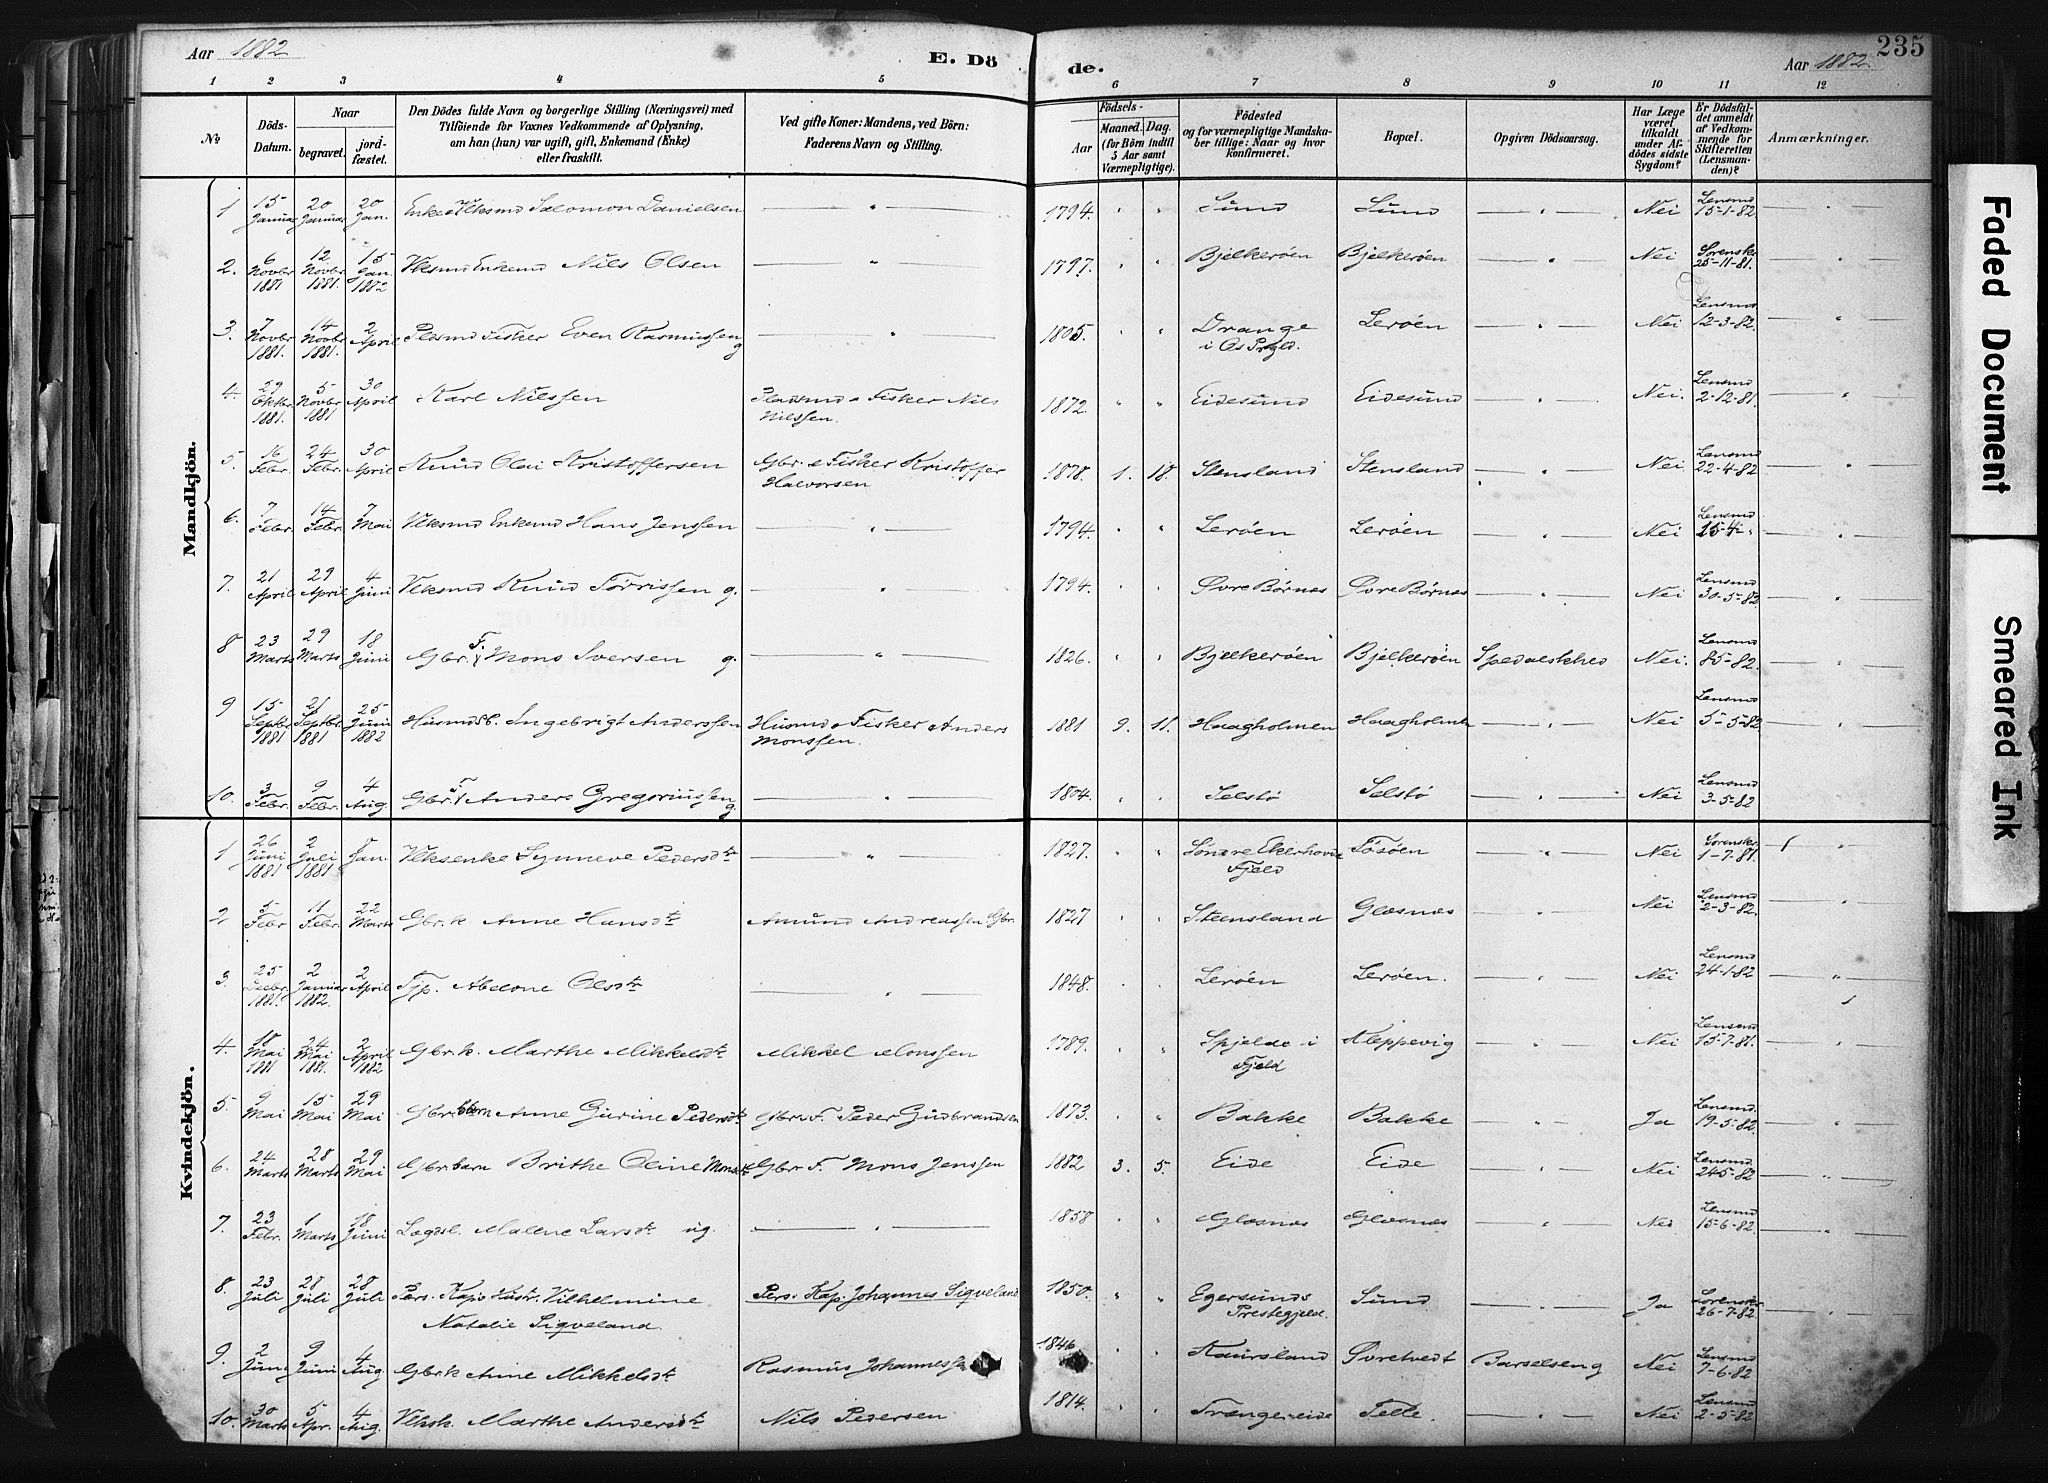 Aar 1882
E. Dö
de.
Aar 1882.
235
1 2 3 4 5 6 7 8 9 10 11 12
No
Döds-Datum.
Naar
begravet.
jord-fæstet.
Den Dödes fulde Navn og borgerlige Stilling (Næringsvei) med
Tilföiende for Voxnes Vedkommende af Oplysning,
om han (hun) var ugift, gift, Enkemand (Enke)
eller fraskilt.
Ved gifte Koner: Mandens, ved Börn:
Faderens Navn og Stilling.
Födsels-
Aar
Maaned. Dag.
(for Börn indtil
5 Aar samt
Værnepligtige).
Födested
og for værnepligtige Mandska-
ber tillige: Naar og hvor
konfirmeret.
Bopæl.
Opgiven Dödsaarsag.
Har Læge
været
tilkaldt
under Af-
dödes sidste
Sygdom?
Er Dödsfal-
det anmeldt
af Vedkom-
mende for
Skifteretten
(Lensman-
den)?
Anmærkninger.
Mandkjön.
1 15 Januar 20 Januar 20 Jan. Enke Salomon Danielsen — " — 1794. " " Sund Sund — " — Nei Lensmd 15-1-82 — " —
2. 6 Novbr 1881 12 Novbr 1881. 15 Jan. 1882 Enkemd Nils Olsen — " — 1797. " " Bjelkerøen Bjelkerøen — " — Nei Sorenskr 25-11-81. "
3. 7 Novbr 1881. 14 Novbr 1881. 2 April Fisker Even Rasmussen g — " — 1805. " " Drange i Os Prgld. Lerøen — " — Nei Lensmd 12-3-82. "
4. 29 Oktbr 1881. 5 Novbr 1881 30 April Karl Nilssen Pladsmd e Fisker Nils Nilssen. 1872. " " Eidesund Eidesund — " — Nei. Lensmd 2-12-81. "
5. 16 Febr. 24 Febr. 30 April Knud Olai Kristoffersen Gbr. e Fisker Kristoffer Halvorsen 1878. 1. 18. Stensland Stensland — " — Nei Lensmd 22-4-82 "
6. 7 Febr. 14 Febr. 7 Mai Enkemd Hans Jenssen — " — 1794. " " Lerøen Lerøen — " — Nei Lensmd 15-4- " "
7. 21 April 29 April 4 Juni Knud Tørrissen g. — " — 1794. " " Øvre Børnæs Øvre Børnæs — " — Nei Lensmd 30-5-82 "
8 23 Marts 29 Marts 18 Juni Gbr. F. Mons Iversen g. — " — 1826. " " Bjelkerøen Bjelkerøen Spedalskhed Nei. Lensmd 85-82. "
9 15 Septbr 1881 21 Septbr. 1881 25 Juni 1882 Husmdsb. Ingebrigt Anderssen Husmd e Fisker Anders Monssen. 1881 9. 11. Haagholmen Haagholmen — " — Nei Lensmd 5-5-82 "
10. 3 Febr. 9 Febr. 4 Aug. Gbr. F. Anders Gregoriussen g. — " — 1804. " " Selstø Selstø — " — Nei Lensmd 3-5-82
Kvindekjön.
1 26 Juni 1881 2 Juli 1881 Jan. Synneve Pedersdtr — " — 1827. " " Søndre Ekerhovd Fjeld Tøsøen — " — Nei Sorenskr. 1-7-81. "
2 5 Febr 11 Febr. 22 Marts Gbr.k. Anne Hansdtr Amund Andreassen Gbr. 1827 " " Steensland Glæsnæs — " — Nei Lensmd 2-3-82. "
3. 25 1881. 2 Januar 1882. 2 April Tjp. Abelone Olsdtr — " — 1848. " " Lerøen Lerøen. — " — Nei Lensmd 24-1-82 "
4. 18 Mai 1881 24 Mai 1881. 2 April 1882 Gbr.k. Marthe Mikkelsdtr Mikkel Monssen 1789. " " Spjelde i Fjeld Kleppevig — " — Nei Lensmd 15-7-81. "
5. 9 Mai 15 Mai 29 Mai Gbr.barn Anne Gurine Pedersdtr Gbr e F. Peder Gudbrandsen 1873. " " Bakke Bakke — " — Ja Lensmd. 19-5-82. "
6. 24 Marts 28 Marts 29 Mai Gbr.barn Brithe Oline Monsdtr Gbr F. Mons Jenssen 1882 3. 5. Eide Eide — " — Nei Lensmd 24-5-82 "
7. 23 Febr. 1 Marts 18 Juni Lægdsl. Malene Larsdtr ug. — " — 1858 " " Glæsnæs Glæsnæs — " — Nei Lensmd 15-6-82. "
8. 23 Juli 28 Juli 28 Juli Pers. Kap. Hustr. Vilhelmine Natalie Sigveland. Pers. Kap. Johannes Sigveland 1850. " " Egersunds Prestegjeld. Sund — " — Ja Sorenskr. 26-7-82. "
9. 2 Juni 9 Juni 4 Aug. Gbr.k Anne Mikkelsdtr Rasmus Johannessen 1846 " " Kaursland Øvretvedt Barselseng Nei Lensmd 7-6-82 "
10. 30 Marts 5 Apr. 4 Aug. Marthe Andersdtr Nils Pedersen 1814. " " Trængereide Telle. — " — Nei Lensmd 2-5-82 "
Faded Document
Smeared Ink